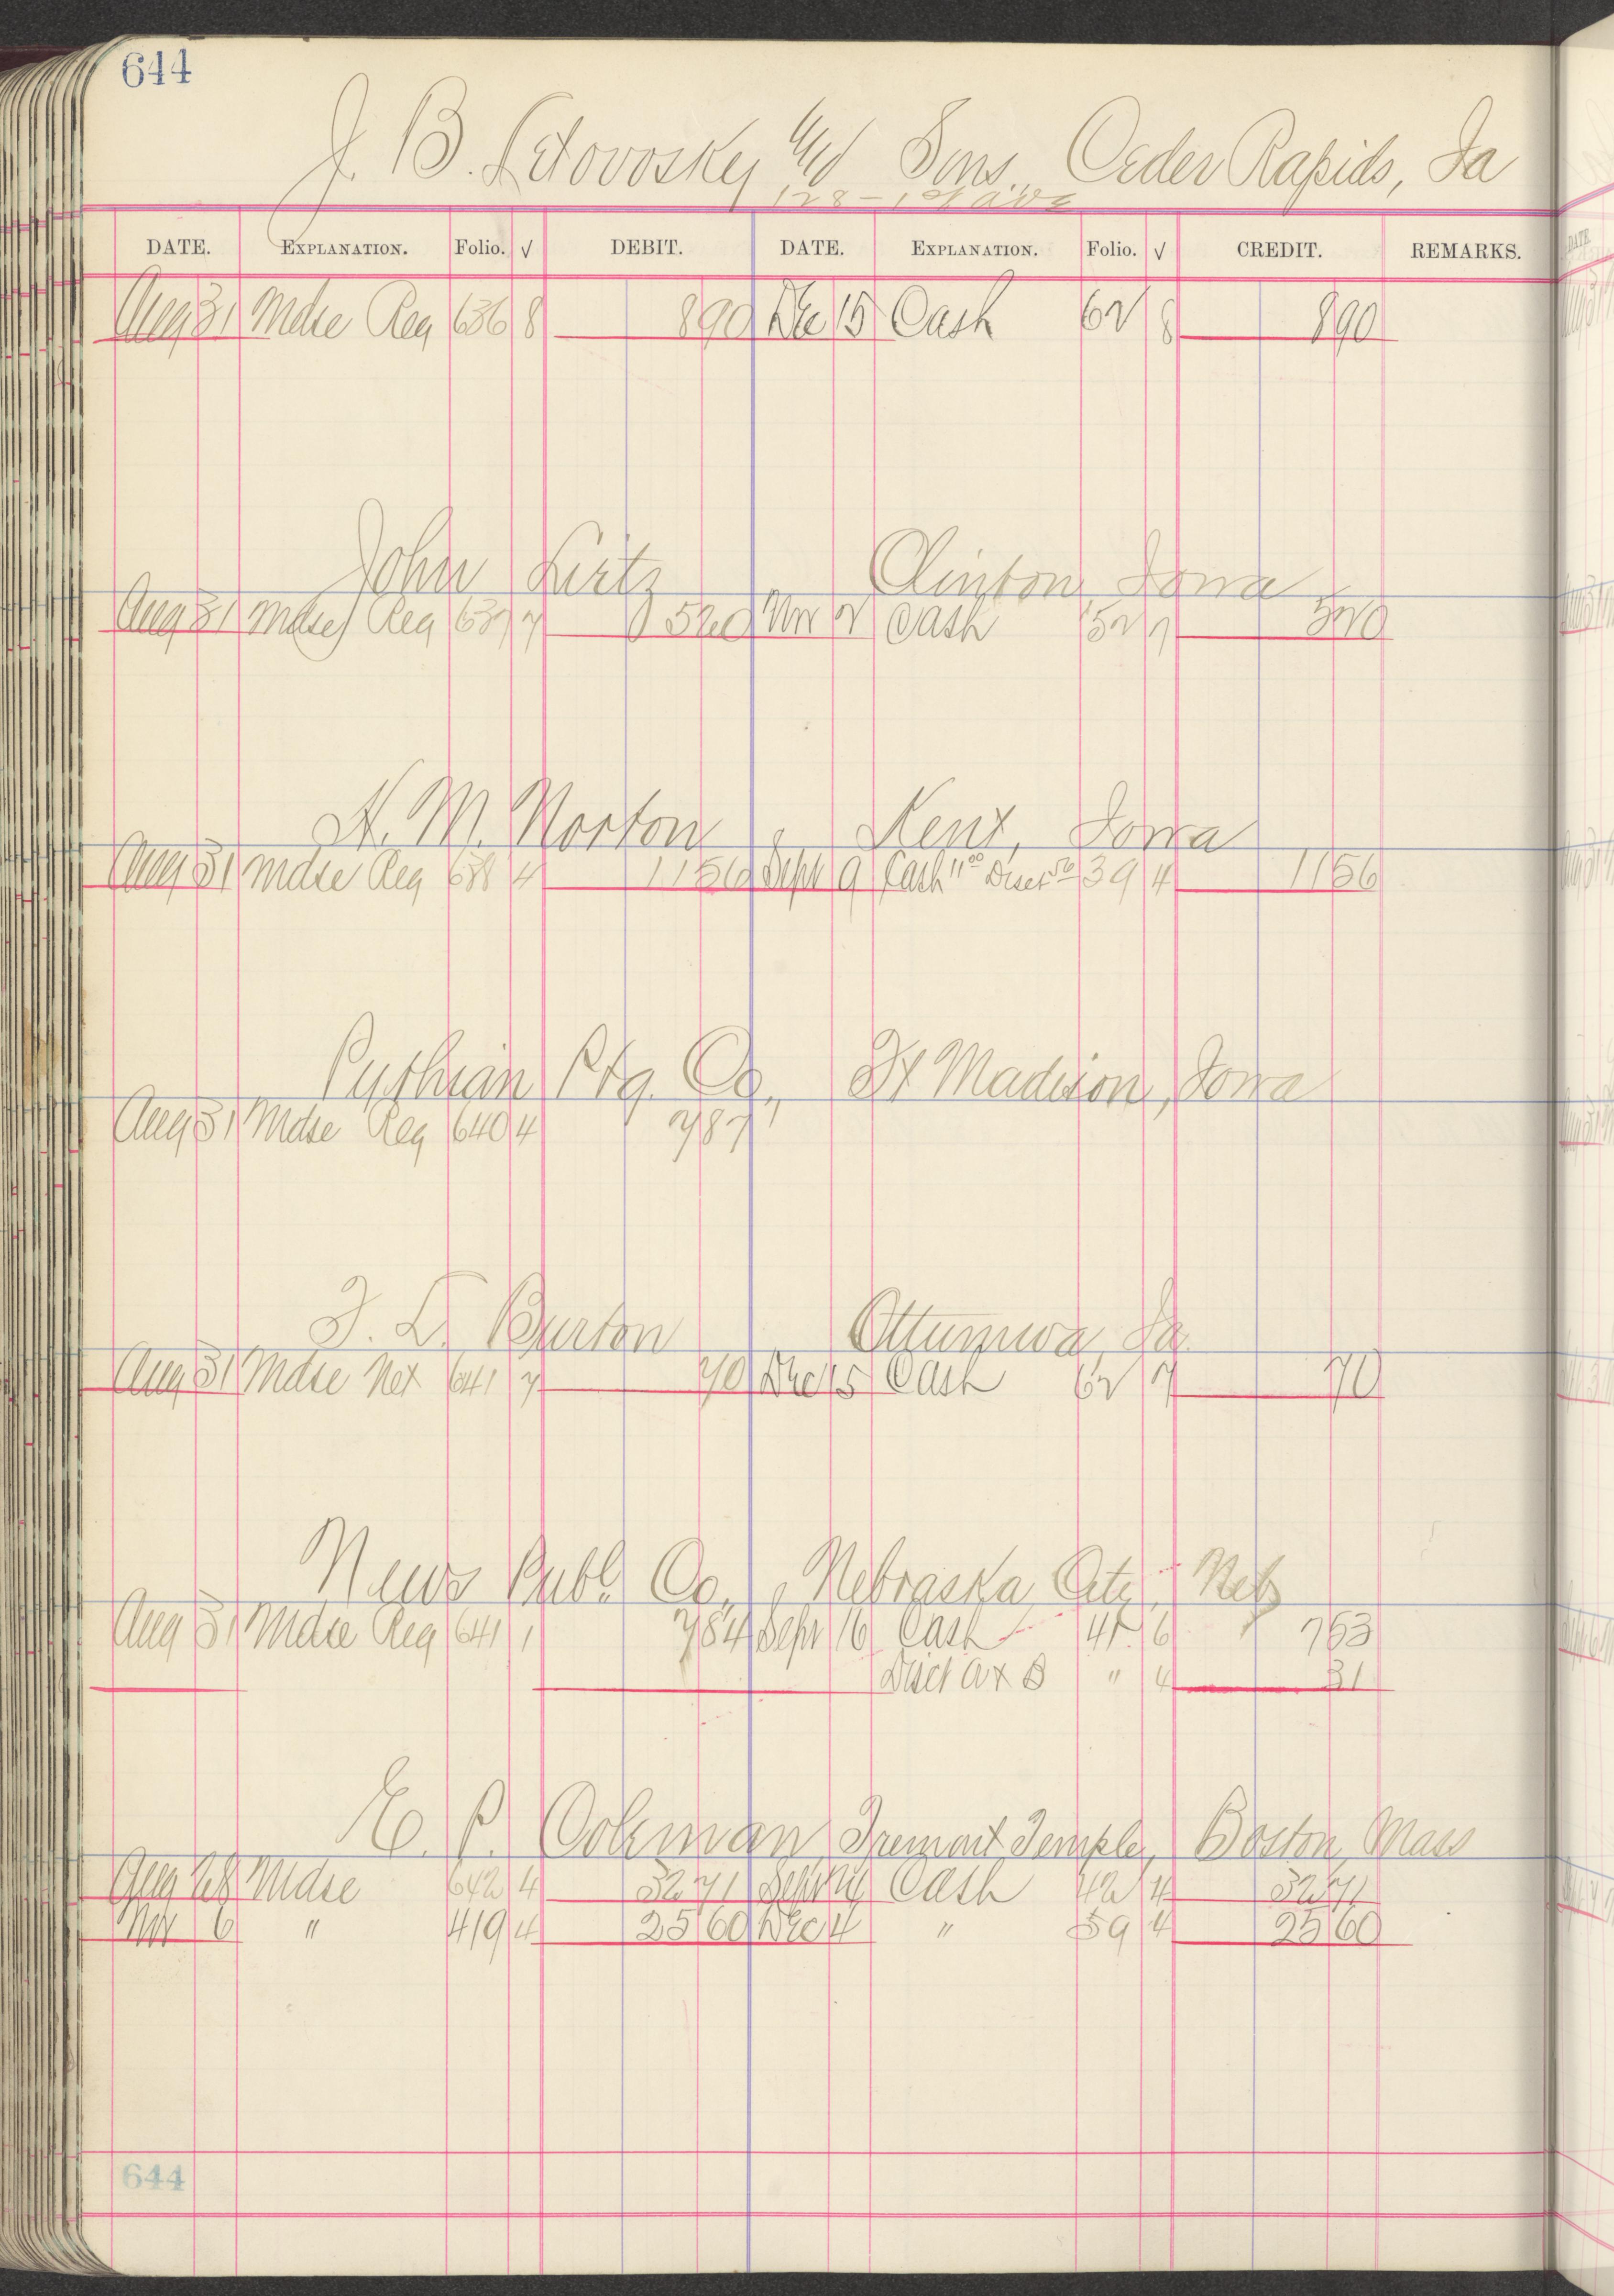 644
J. B. Letovosky and Sons, Ceder Rapids, Ia
128 - 1st Ave
DATE. EXPLANATION. Folio. √ DEBIT. DATE. EXPLANATION. Folio. √ CREDIT. REMARKS.
Aug 31 Mdse Reg 636 8 8 90 Dec 15 Cash 62 8 8 90
John Lirtz Clinton, Iowa
Aug 31 Mdse Reg 637 7 5 20 Nov 2 Cash 52 7 5 20
N. M. Norton, Kent, Iowa
Aug 31 Mdse Reg 638 4 11 56 Sept 9 Cash 11 00 Disct 56 39 4 11 56
Pythian Ptg. Co., Ft Madison, Iowa
Aug 31 Mdse Reg 640 4 7 87
J. L. Burton Ottumwa, Ia.
Aug 31 Mdse Net 641 7 70 Dec 15 Cash 62 7 70
News Publ. Co., Nebraska City, Neb
Aug 31 Mdse Reg 641 1 7 84 Sept 16 Cash 41 6 7 63
Disct " 4 21
E. P. Coleman, Tremont Temple, Boston, Mass
Aug Mdse 642 4 32 71 Sept Cash 42 4 32 71
Nov 6 " 419 4 25 60 Dec 4 " 59 4 25 60
644